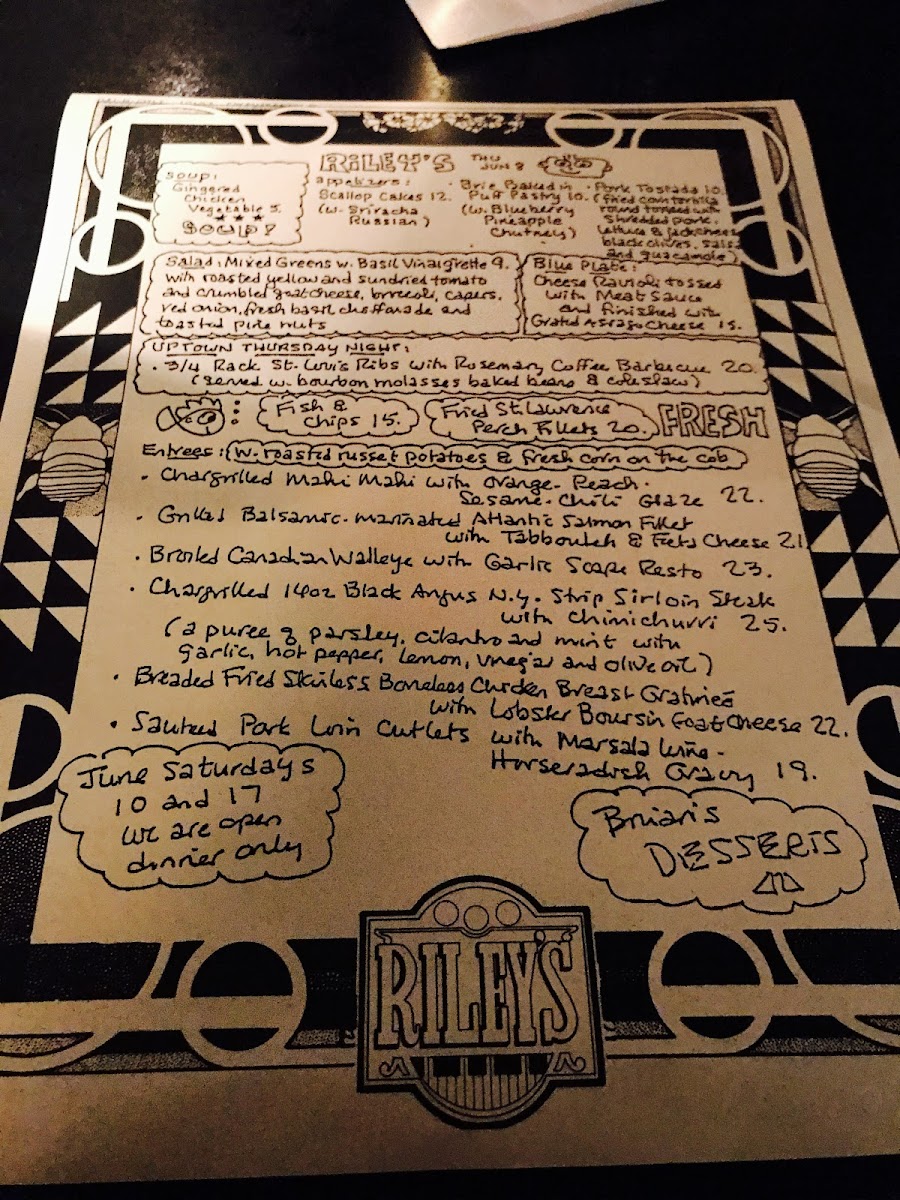 RILEY'S THU JUN 8
SOUP:
Gingered
Chicken
Vegetable 5.
SOUP!
appetizers:
Scallop Cakes 12.
(w. Sriracha
Russian)
• Brie Baked in
Puff Pastry 10.
(w. Blueberry
Pineapple
Chutney)
• Pork Tostada 10.
(fried corn tortilla
round topped with
shredded pork,
lettuce & jack cheese
black olives, salsa
and guacamole)
Salad: Mixed Greens w. Basil Vinaigrette 9.
with roasted yellow and sundried tomato
and crumbled goat cheese, broccoli, capers,
red onion, fresh basil chiffonade and
toasted pine nuts
Blue Plate:
Cheese Ravioli tossed
with Meat Sauce
and finished with
Grated Asiago Cheese 15.
UPTOWN THURSDAY NIGHT:
• 3/4 Rack St. Louis Ribs with Rosemary Coffee Barbecue 20.
(served w. bourbon molasses baked beans & coleslaw)
Fish &
Chips 15.
Fried St. Lawrence
Perch Fillets 20.
FRESH
Entrees: w. roasted russet potatoes & fresh corn on the cob
• Chargrilled Mahi Mahi with Orange-Peach-
Sesame-Chili Glaze 22.
• Grilled Balsamic-Marinated Atlantic Salmon Fillet
with Tabbouleh & Feta Cheese 21.
• Broiled Canadian Walleye with Garlic Scape Pesto 23.
• Chargrilled 14oz Black Angus N.Y. Strip Sirloin Steak
with Chimichurri 25.
(a puree of parsley, cilantro and mint with
garlic, hot pepper, lemon, vinegar and olive oil)
• Breaded Fried Skinless Boneless Chicken Breast Gratinéed
with Lobster Boursin Goat Cheese 22.
• Sauteed Pork Loin Cutlets with Marsala Wine-
Horseradish Gravy 19.
June Saturdays
10 and 17
we are open
dinner only
Brian's
DESSERTS
RILEY'S